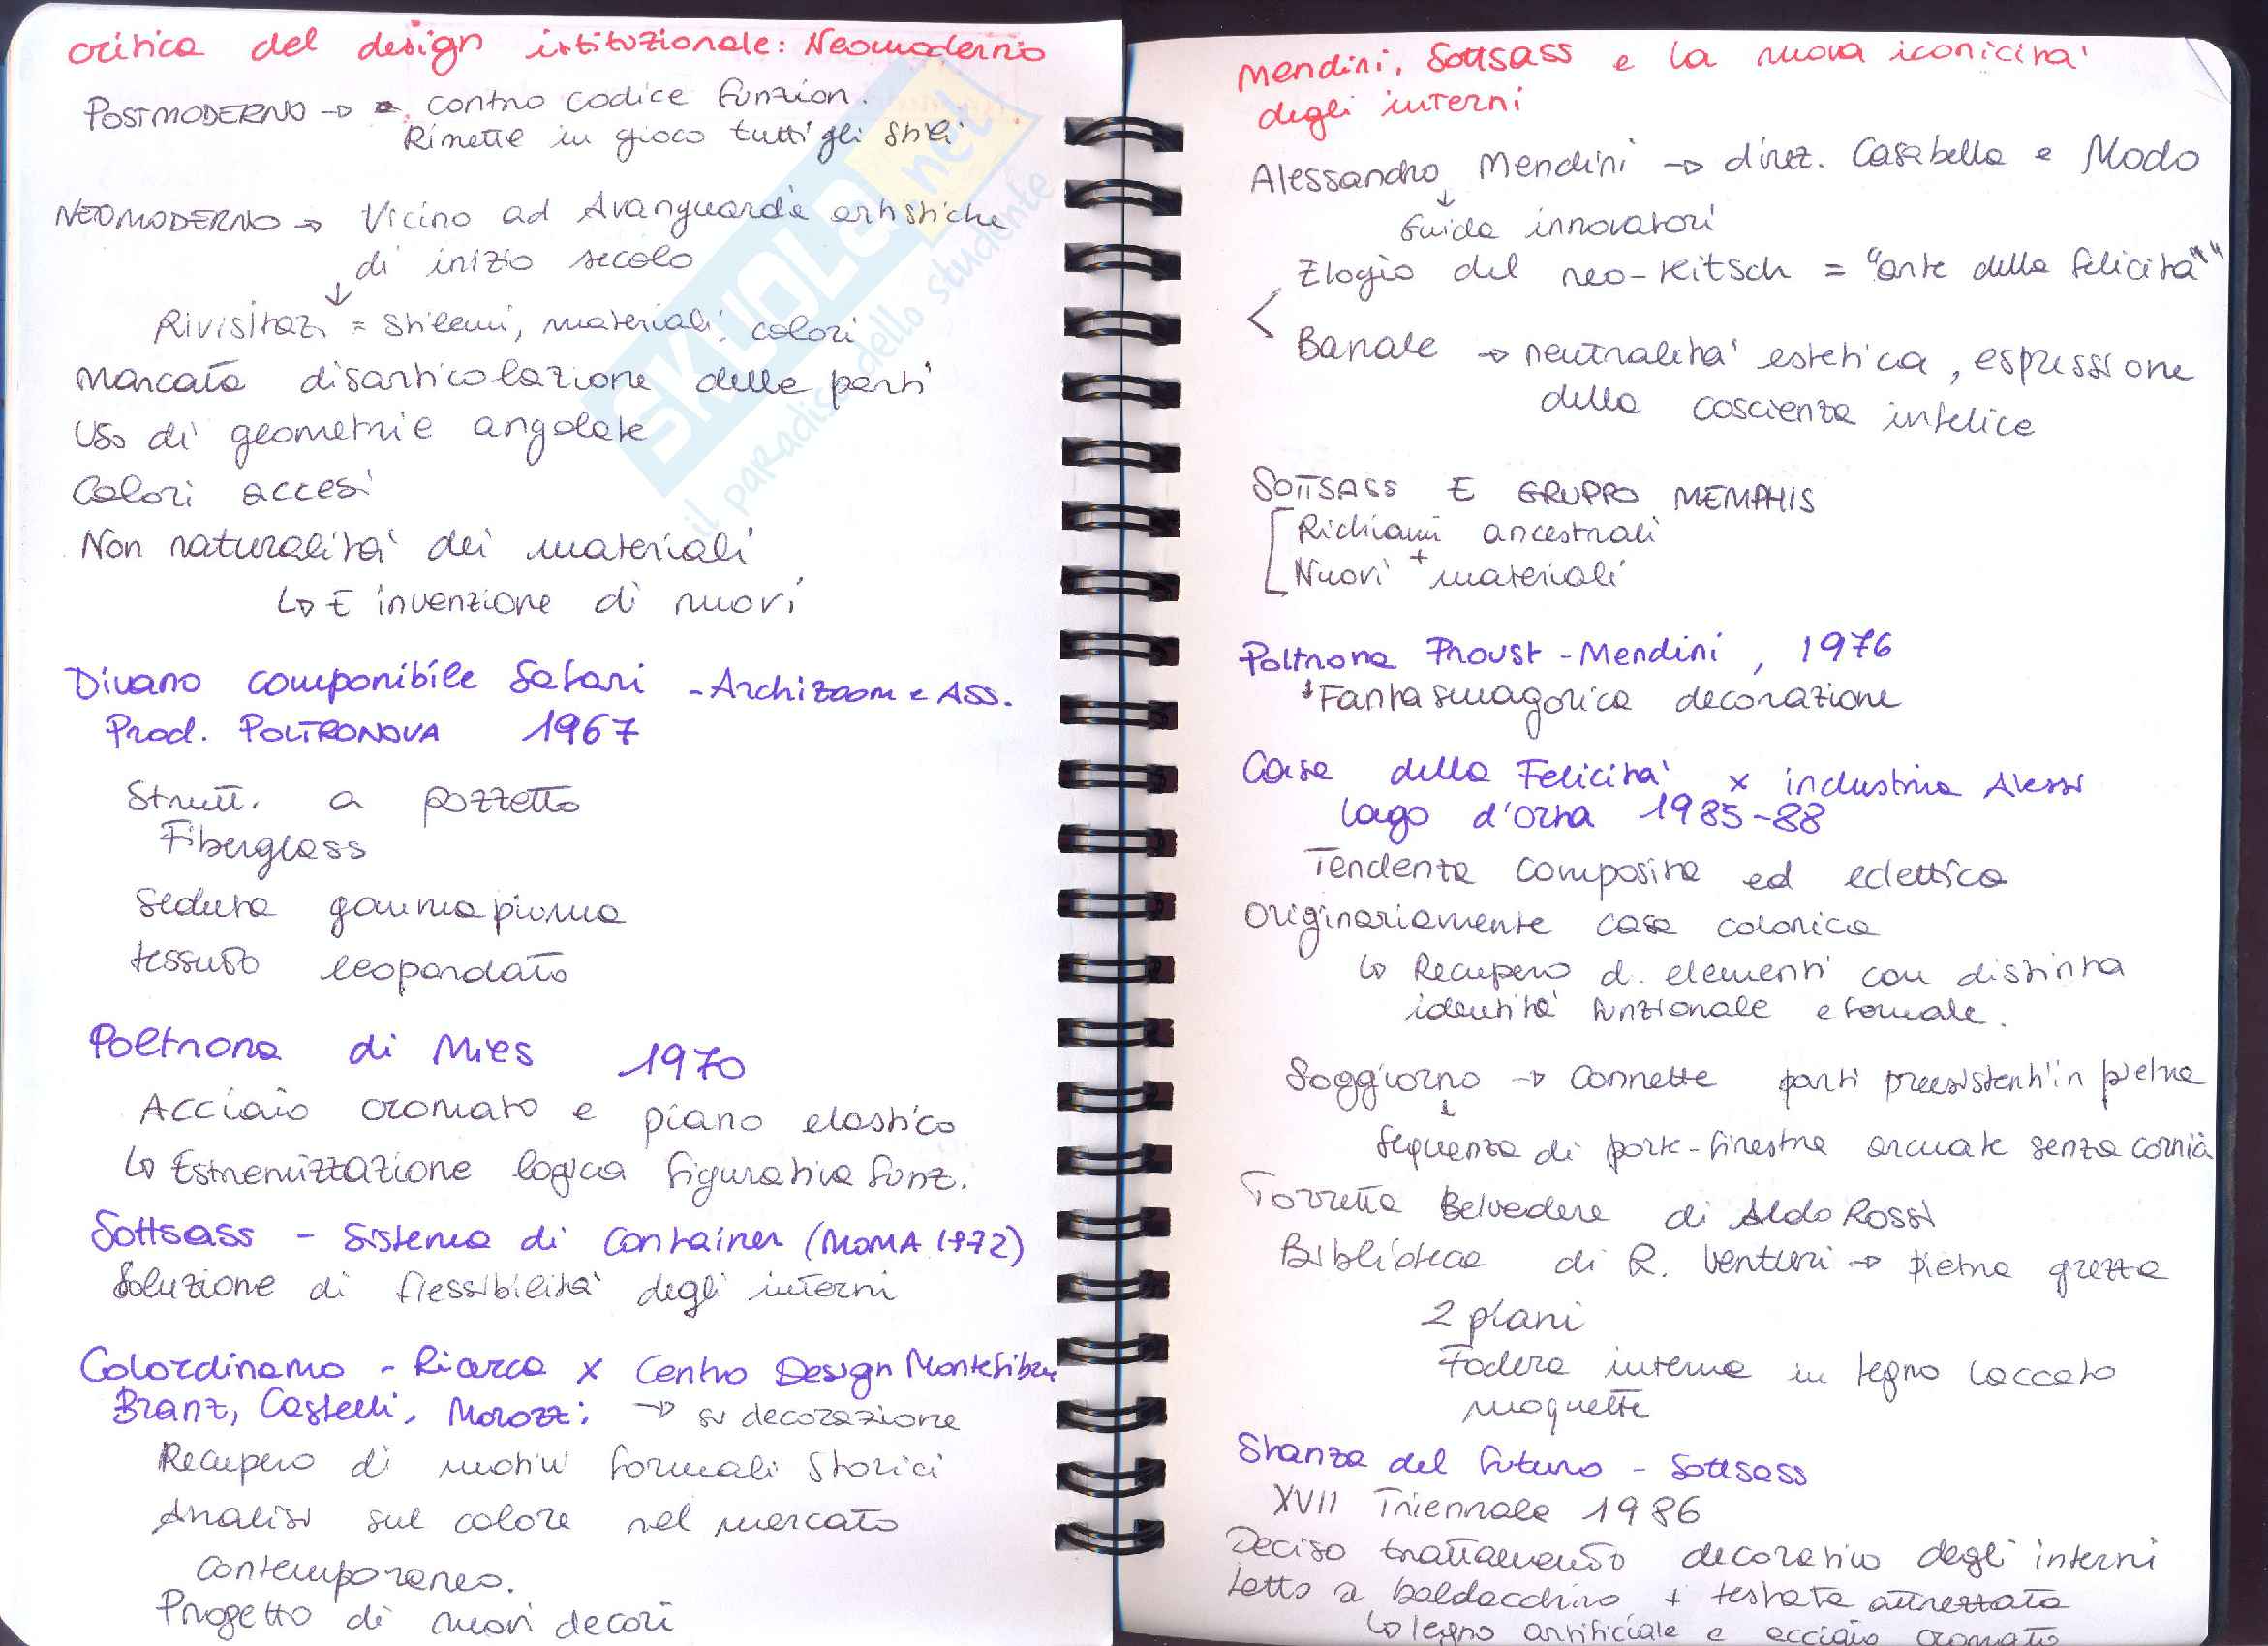 critica del design istituzionale: Neomoderno
POSTMODERNO → contro codice funzion.
Rimette in gioco tutti gli stili
NEOMODERNO → Vicino ad Avanguardie artistiche
di inizio secolo
↓
Rivisitaz. = stilemi, materiali, colori
Marcata disarticolazione delle parti
Uso di geometrie angolate
Colori accesi
Non naturalità dei materiali
↳ E invenzione di nuovi
Divano componibile Safari - Archizoom e Ass.
Prod. POLTRONOVA 1967
Strutt. a pozzetto
Fiberglass
Seduta gommapiuma
tessuto leopardato
Poltrona di Mies 1970
Acciaio cromato e piano elastico
↳ Estremizzazione logica figurativa funz.
Sottsass - Sistema di Container (MOMA 1972)
Soluzione di flessibilità degli interni
Colordinamo - Ricerca x Centro Design Montefibre
Branz, Castelli, Morozzi → su decorazione
Recupero di motivi formali storici
Analisi sul colore nel mercato
contemporaneo.
Progetto di nuovi decori
SKUOLA.net
il paradiso dello studente
Mendini, Sottsass e la nuova iconicità
degli interni
Alessandro Mendini → direz. Casabella e Modo
↓
Guida innovatori
Elogio del neo-kitsch = "arte della felicità"
<
Banale → neutralità estetica, espressione
della coscienza infelice
SOTTSASS E GRUPPO MEMPHIS
Richiami ancestrali
+
Nuovi materiali
Poltrona Proust - Mendini, 1976
Fantasmagorica decorazione
Casa della Felicità x industria Alessi
Lago d'Orta 1985-88
Tendenza composita ed eclettica
Originariamente casa colonica
↳ Recupero d. elementi con distinta
identità funzionale e formale.
Soggiorno → connette parti preesistenti in pietra
↓
Sequenza di porte-finestra arcuate senza cornici
Torretta Belvedere di Aldo Rossi
Biblioteca di R. Venturi → pietra grezza
2 piani
Fodera interna in legno laccato
moquette
Stanza del futuro - Sottsass
XVII Triennale 1986
Deciso trattamento decorativo degli interni
Letto a baldacchino + testata attrezzata
↳ legno artificiale e acciaio cromato